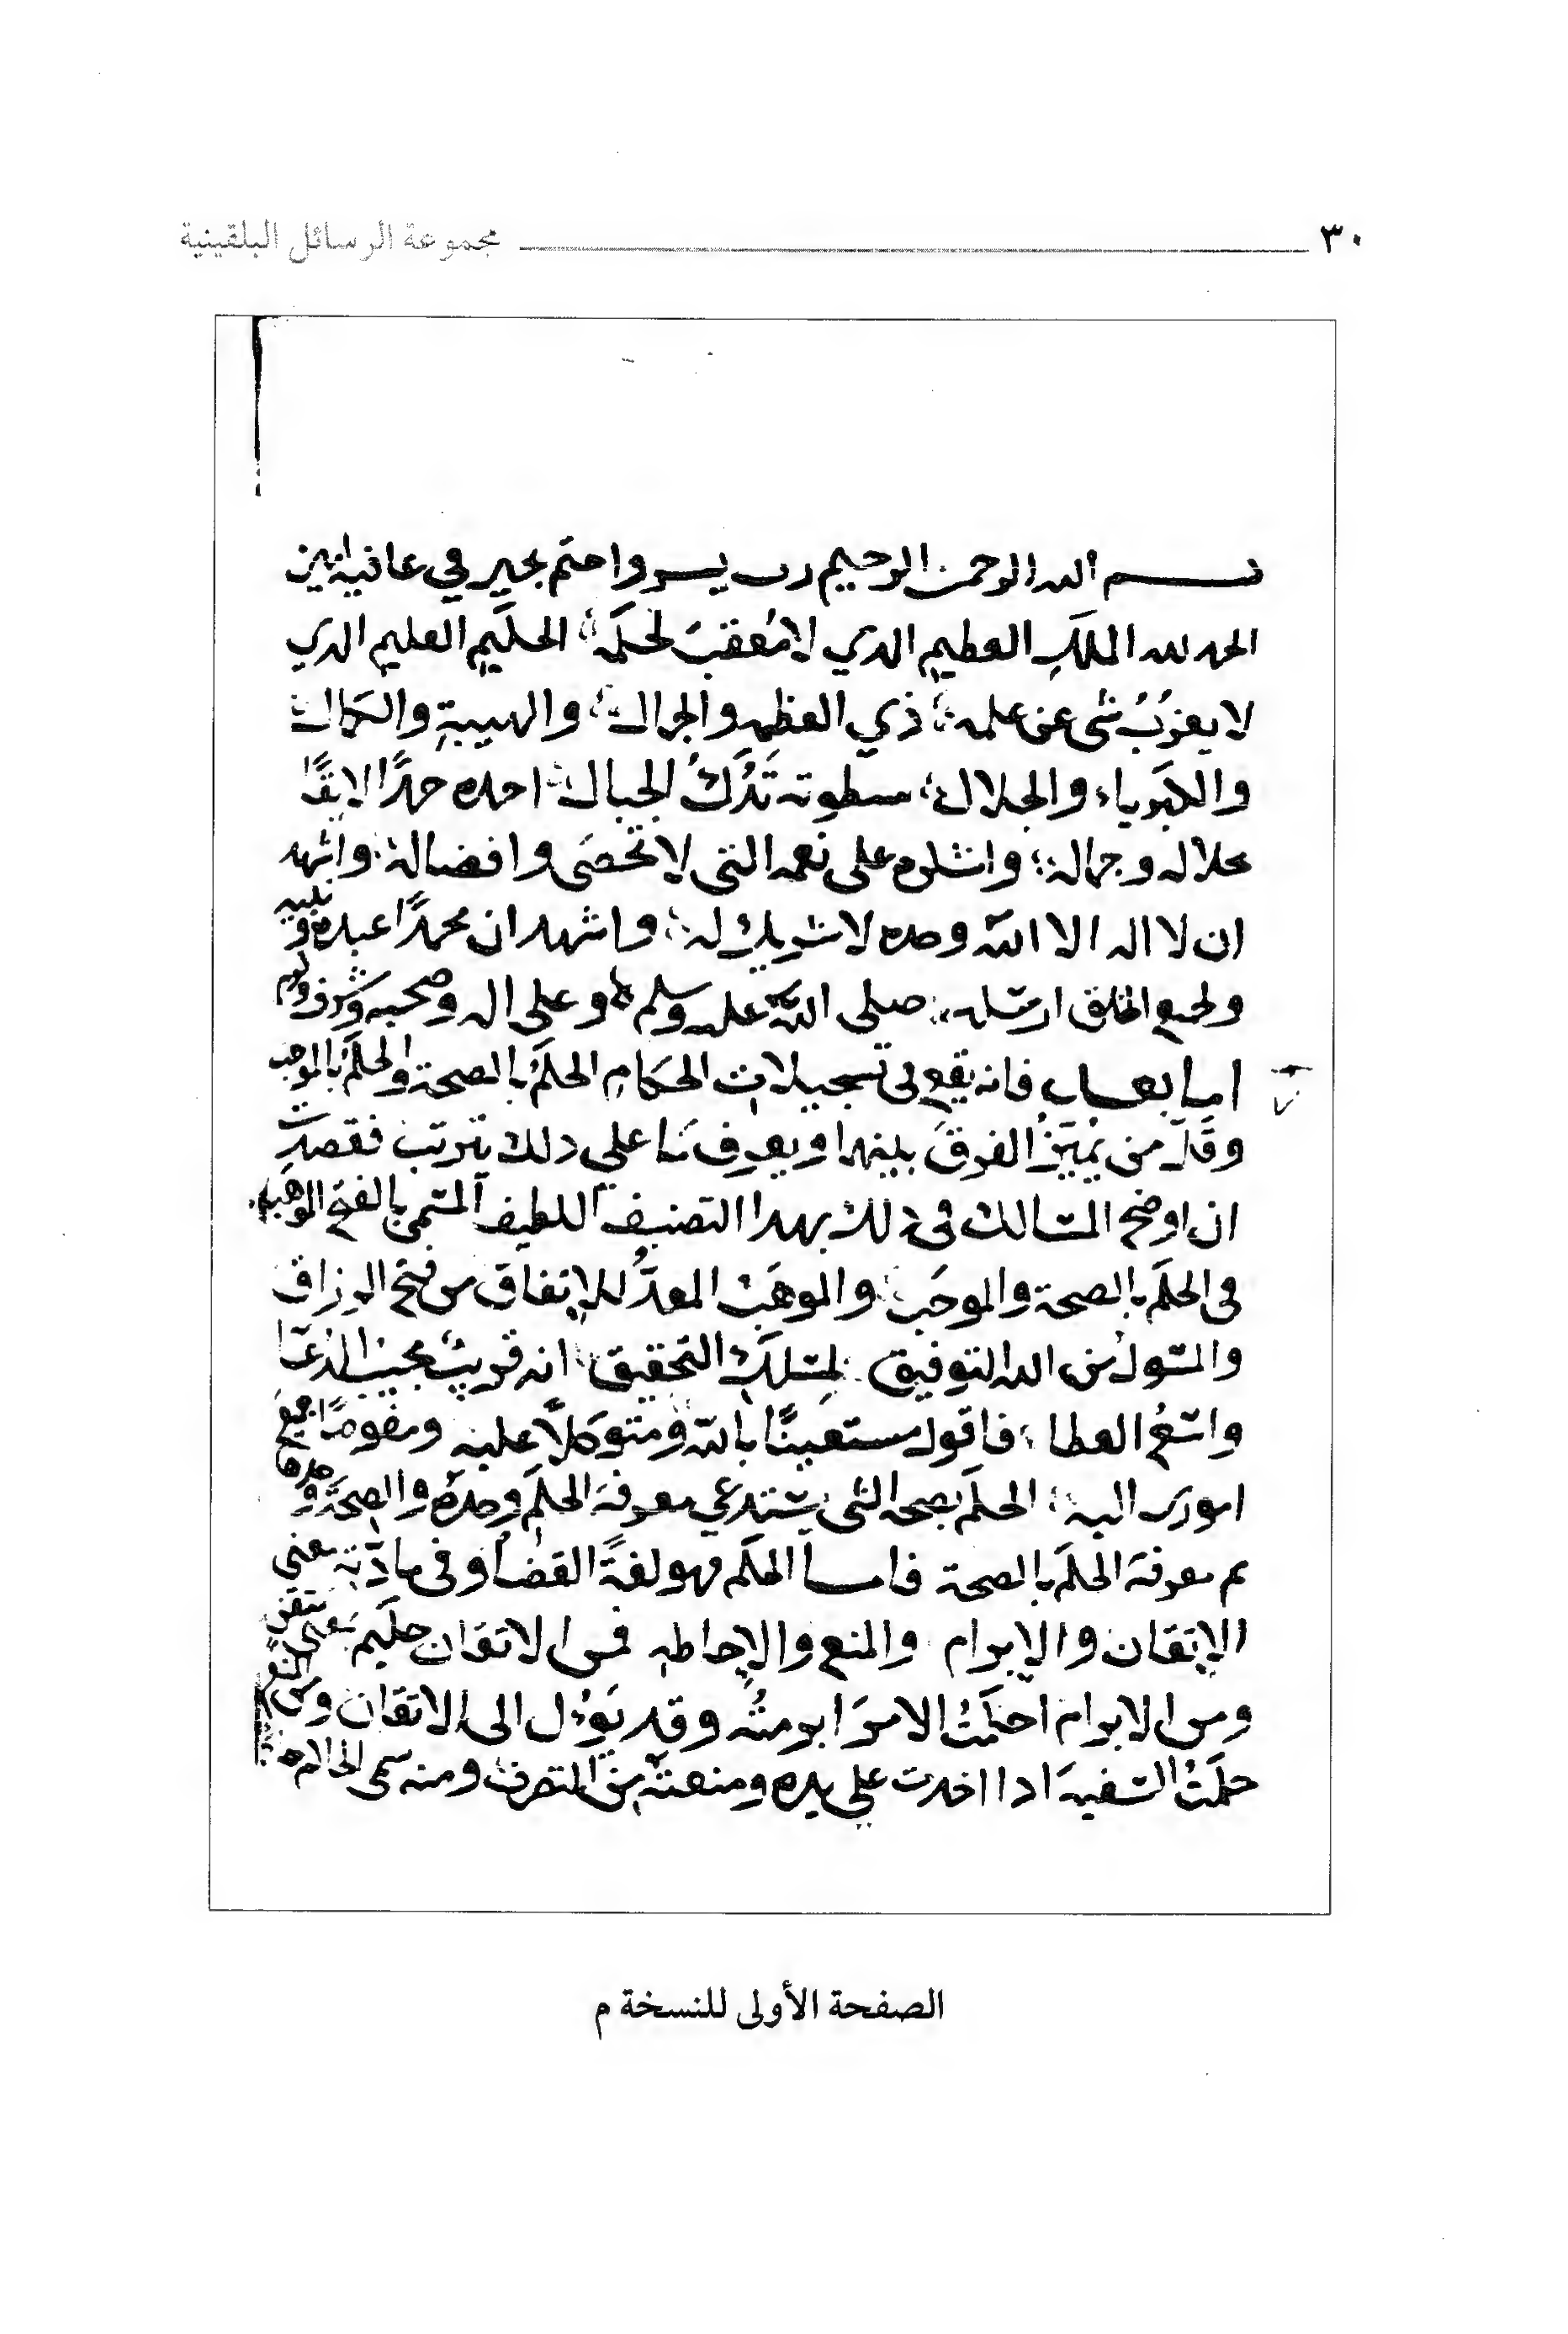 ٣٠ مجموعة الرسائل البلقينية
بسم الله الرحمن الرحيم رب يسر واختم بخير في عافية امين
الحمد لله الملك العظيم الذي لا معقب لحكمه الحكيم العليم الذي
لا يعزب شي عن علمه ذي العظمه والجمال والهيبة والكمال
والكبرياء والجلال سطوته تدك الجبال احمده حمدًا لايقًا
بجلاله وجماله واشكره على نعمه التي لا تحصى وافضاله واشهد
ان لا اله الا الله وحده لا شريك له واشهد ان محمدًا عبده ونبيه
ولجميع الخلق ارسله صلى الله عليه وسلم وعلى اله وصحبه وشرف وكرم
اما بعد فانه يقع في تسجيلات الحكام الحكم بالصحة والحكم بالموجب
وقل من يميز الفرق بينهما ويعرف ما علي ذلك يترتب فقصدت
ان اوضح المسالك في ذلك بهذا التصنيف اللطيف المسمى بالفتح الموهب
في الحكم بالصحة والموجب والموهب المعد للانفاق من فتح الرزاق
والمسول من الله التوفيق لمسلك التحقيق انه قريب مجيب الدعا
واسع العطا فاقول مستعينًا بالله ومتوكلًا عليه ومفوضًا جميع
اموري اليه الحكم بصحه الشي يستدعي معرفة الحكم وحده والصحة وحدها
ثم معرفة الحكم بالصحة فاما الحكم فهو لغةً القضا وفي مادته معنى
الإتقان والإبرام والمنع والإحاطه فمن الاتقان حكيم بمعنى متقن
ومن الابرام احكمت الامر ابرمته وقد يؤل الى الاتقان ومن المنع
حكمت السفيه اذا اخذت علي يده ومنعته من التصرف ومنه سمى الحاكم
الصفحة الأولى للنسخة م